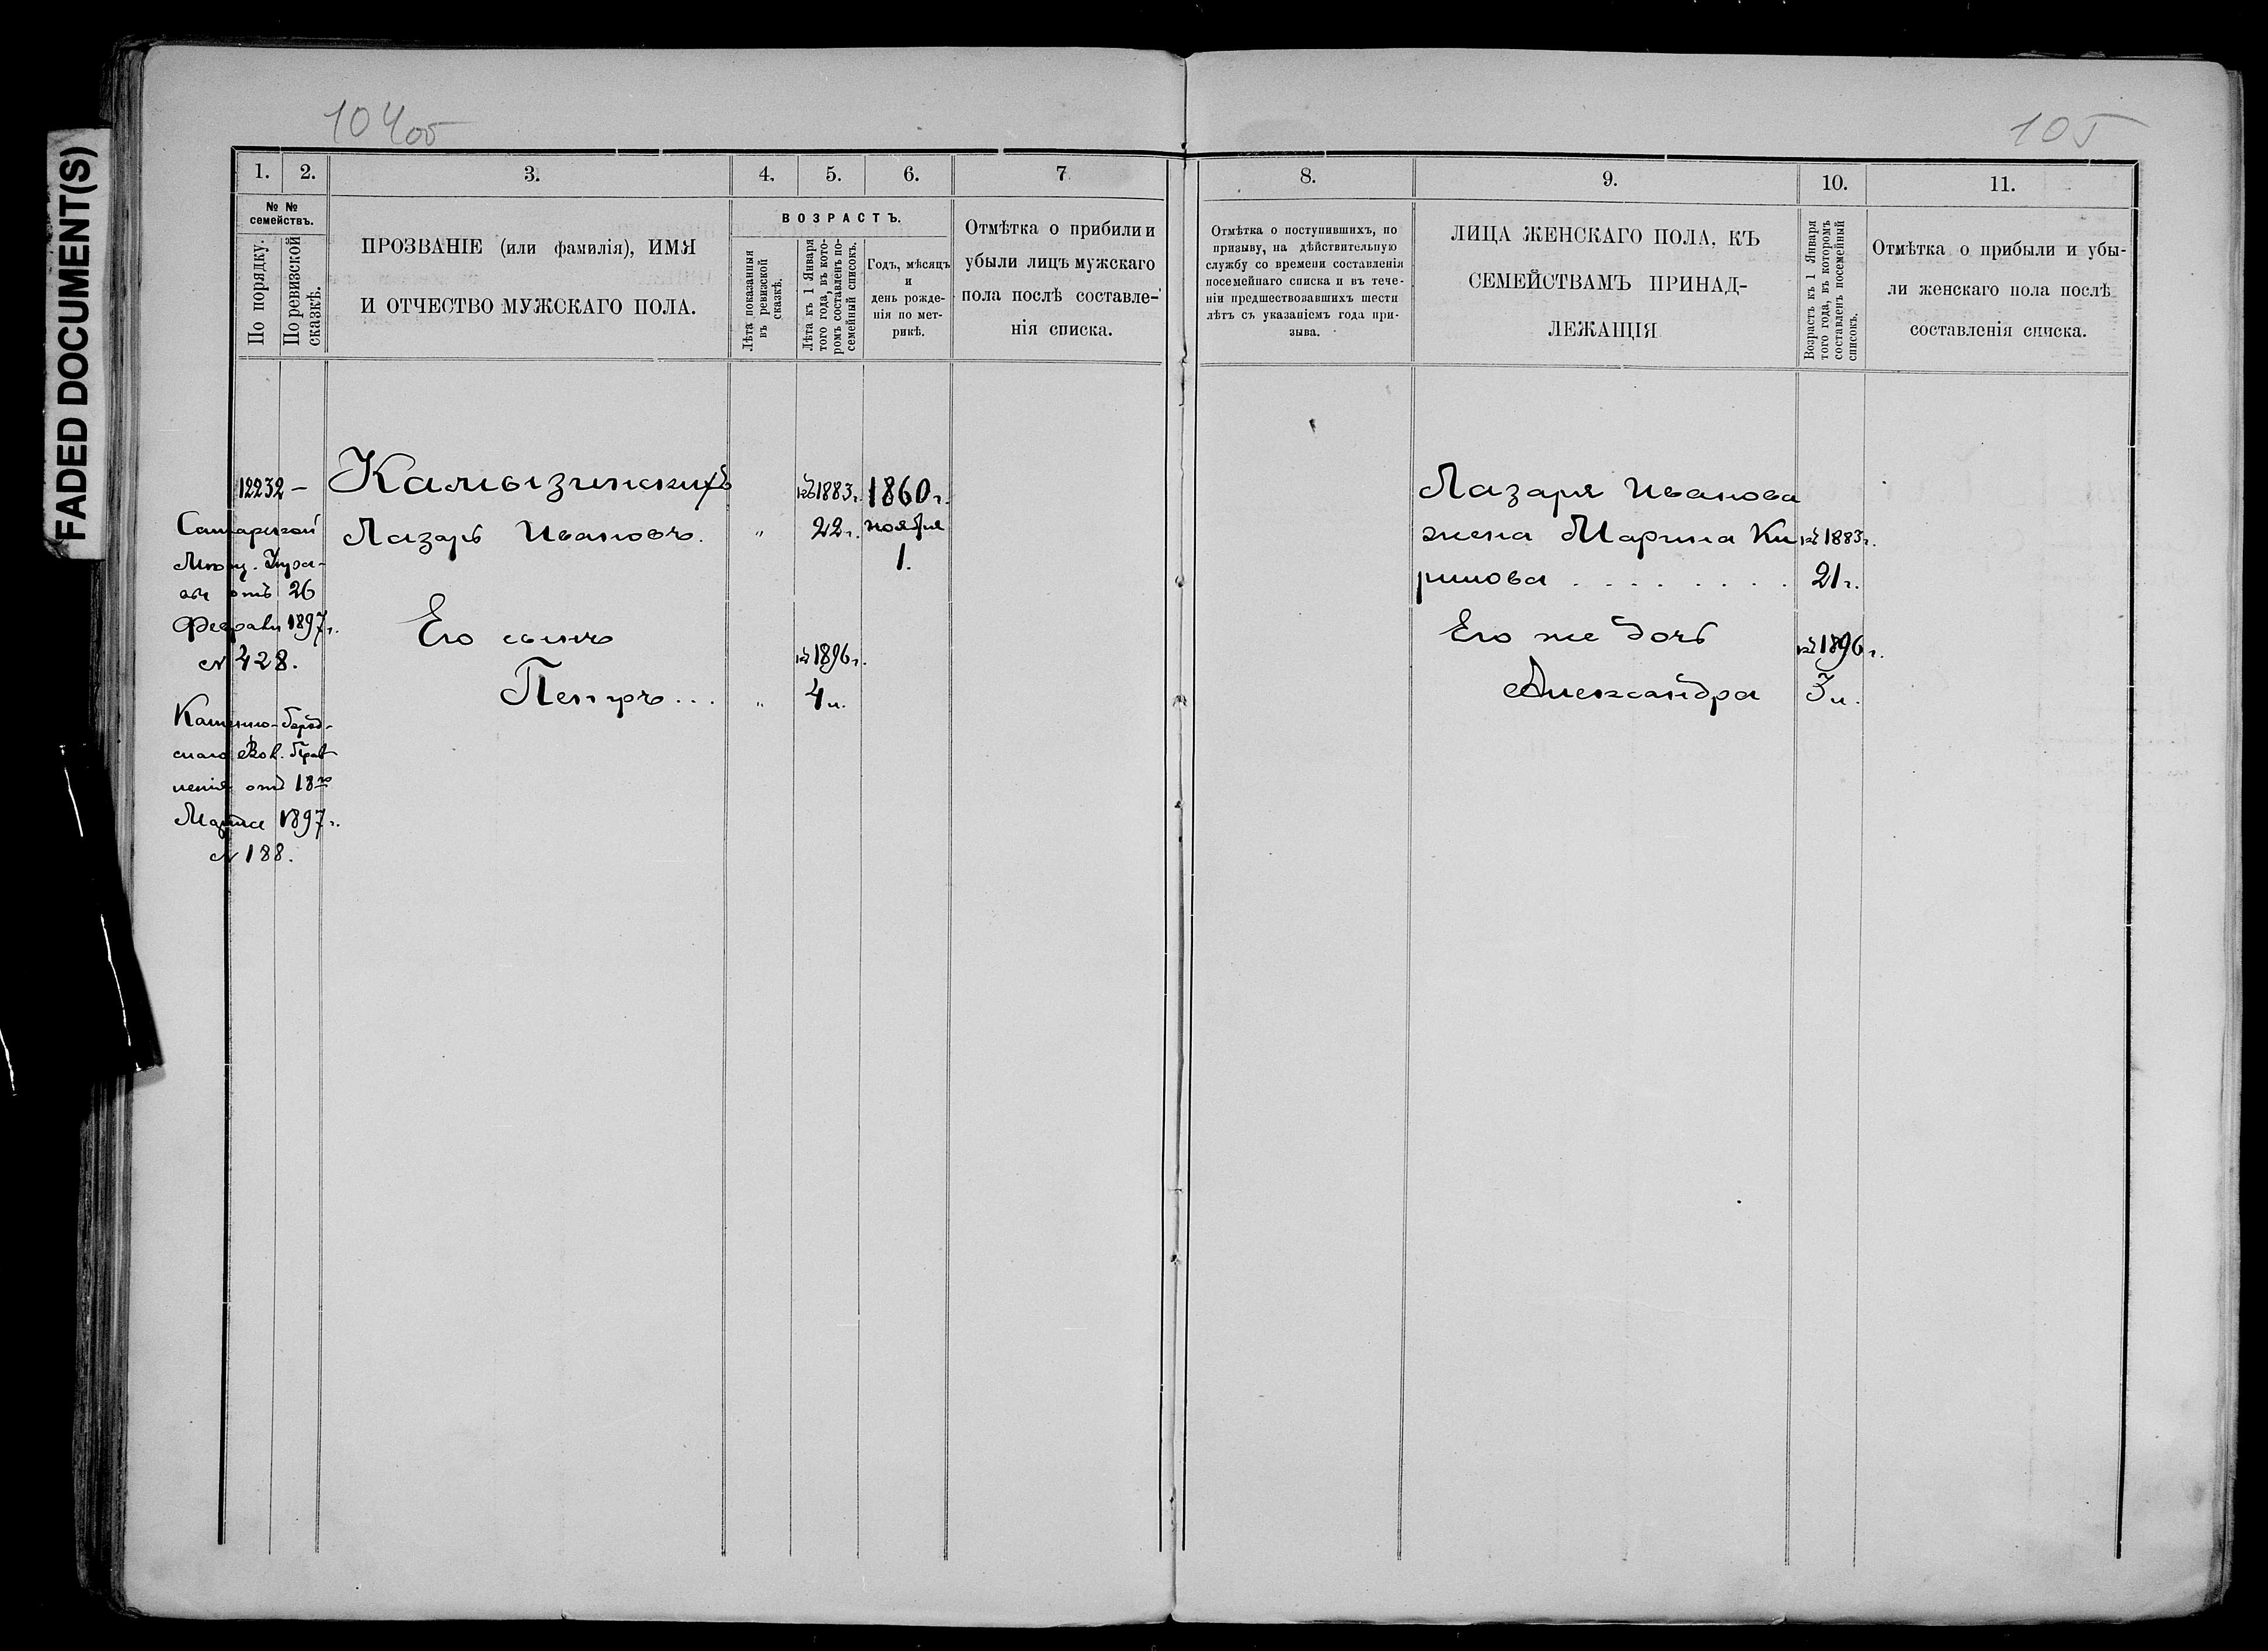 FADED DOCUMENT(S)
104об
105
1. 2. 3. 4. 5. 6. 7
8. 9. 10. 11.
№ №
семействъ.
По порядку.
По ревизской
сказкѣ.
ПРОЗВАНІЕ (или фамилія), ИМЯ
И ОТЧЕСТВО МУЖСКАГО ПОЛА.
ВОЗРАСТЪ.
Лѣта показанныя
въ ревизской
сказкѣ.
Лѣта къ 1 Января
того года, въ кото-
ромъ составленъ по-
семейный списокъ.
Годъ, мѣсяцъ
и
день рожде-
нія по мет-
рикѣ.
Отмѣтка о прибили и
убыли лицъ мужскаго
пола послѣ составле-
нія списка.
Отмѣтка о поступившихъ, по
призыву, на дѣйствительную
службу со времени составленія
посемейнаго списка и въ тече-
ніи предшествовавшихъ шести
лѣтъ съ указаніемъ года при-
зыва.
ЛИЦА ЖЕНСКАГО ПОЛА, КЪ
СЕМЕЙСТВАМЪ ПРИНАД-
ЛЕЖАЩІЯ
Возрастъ къ 1 Января
того года, въ которомъ
составленъ посемейный
списокъ.
Отмѣтка о прибыли и убы-
ли женскаго пола послѣ
составленія списка.
12232 —
Самарской
Мѣщ. Упра-
вы отъ 26
Февраля 1897 г.
№ 428.
Каменно-Брод-
скаго Вол. Прав
ленія отъ 18го
Марта 1897 г.
№ 188.
Камызинскихъ
Лазарь Ивановъ.
Его сынъ
Петръ...
"
"
къ 1883 г.
22 г.
къ 1896 г.
4 л.
1860 г.
ноября
1.
Лазаря Иванова
жена Марина Ки
рилова . . . . . . . .
Его же дочь
Александра
къ 1883 г.
21 г.
къ 1896 г.
3 л.